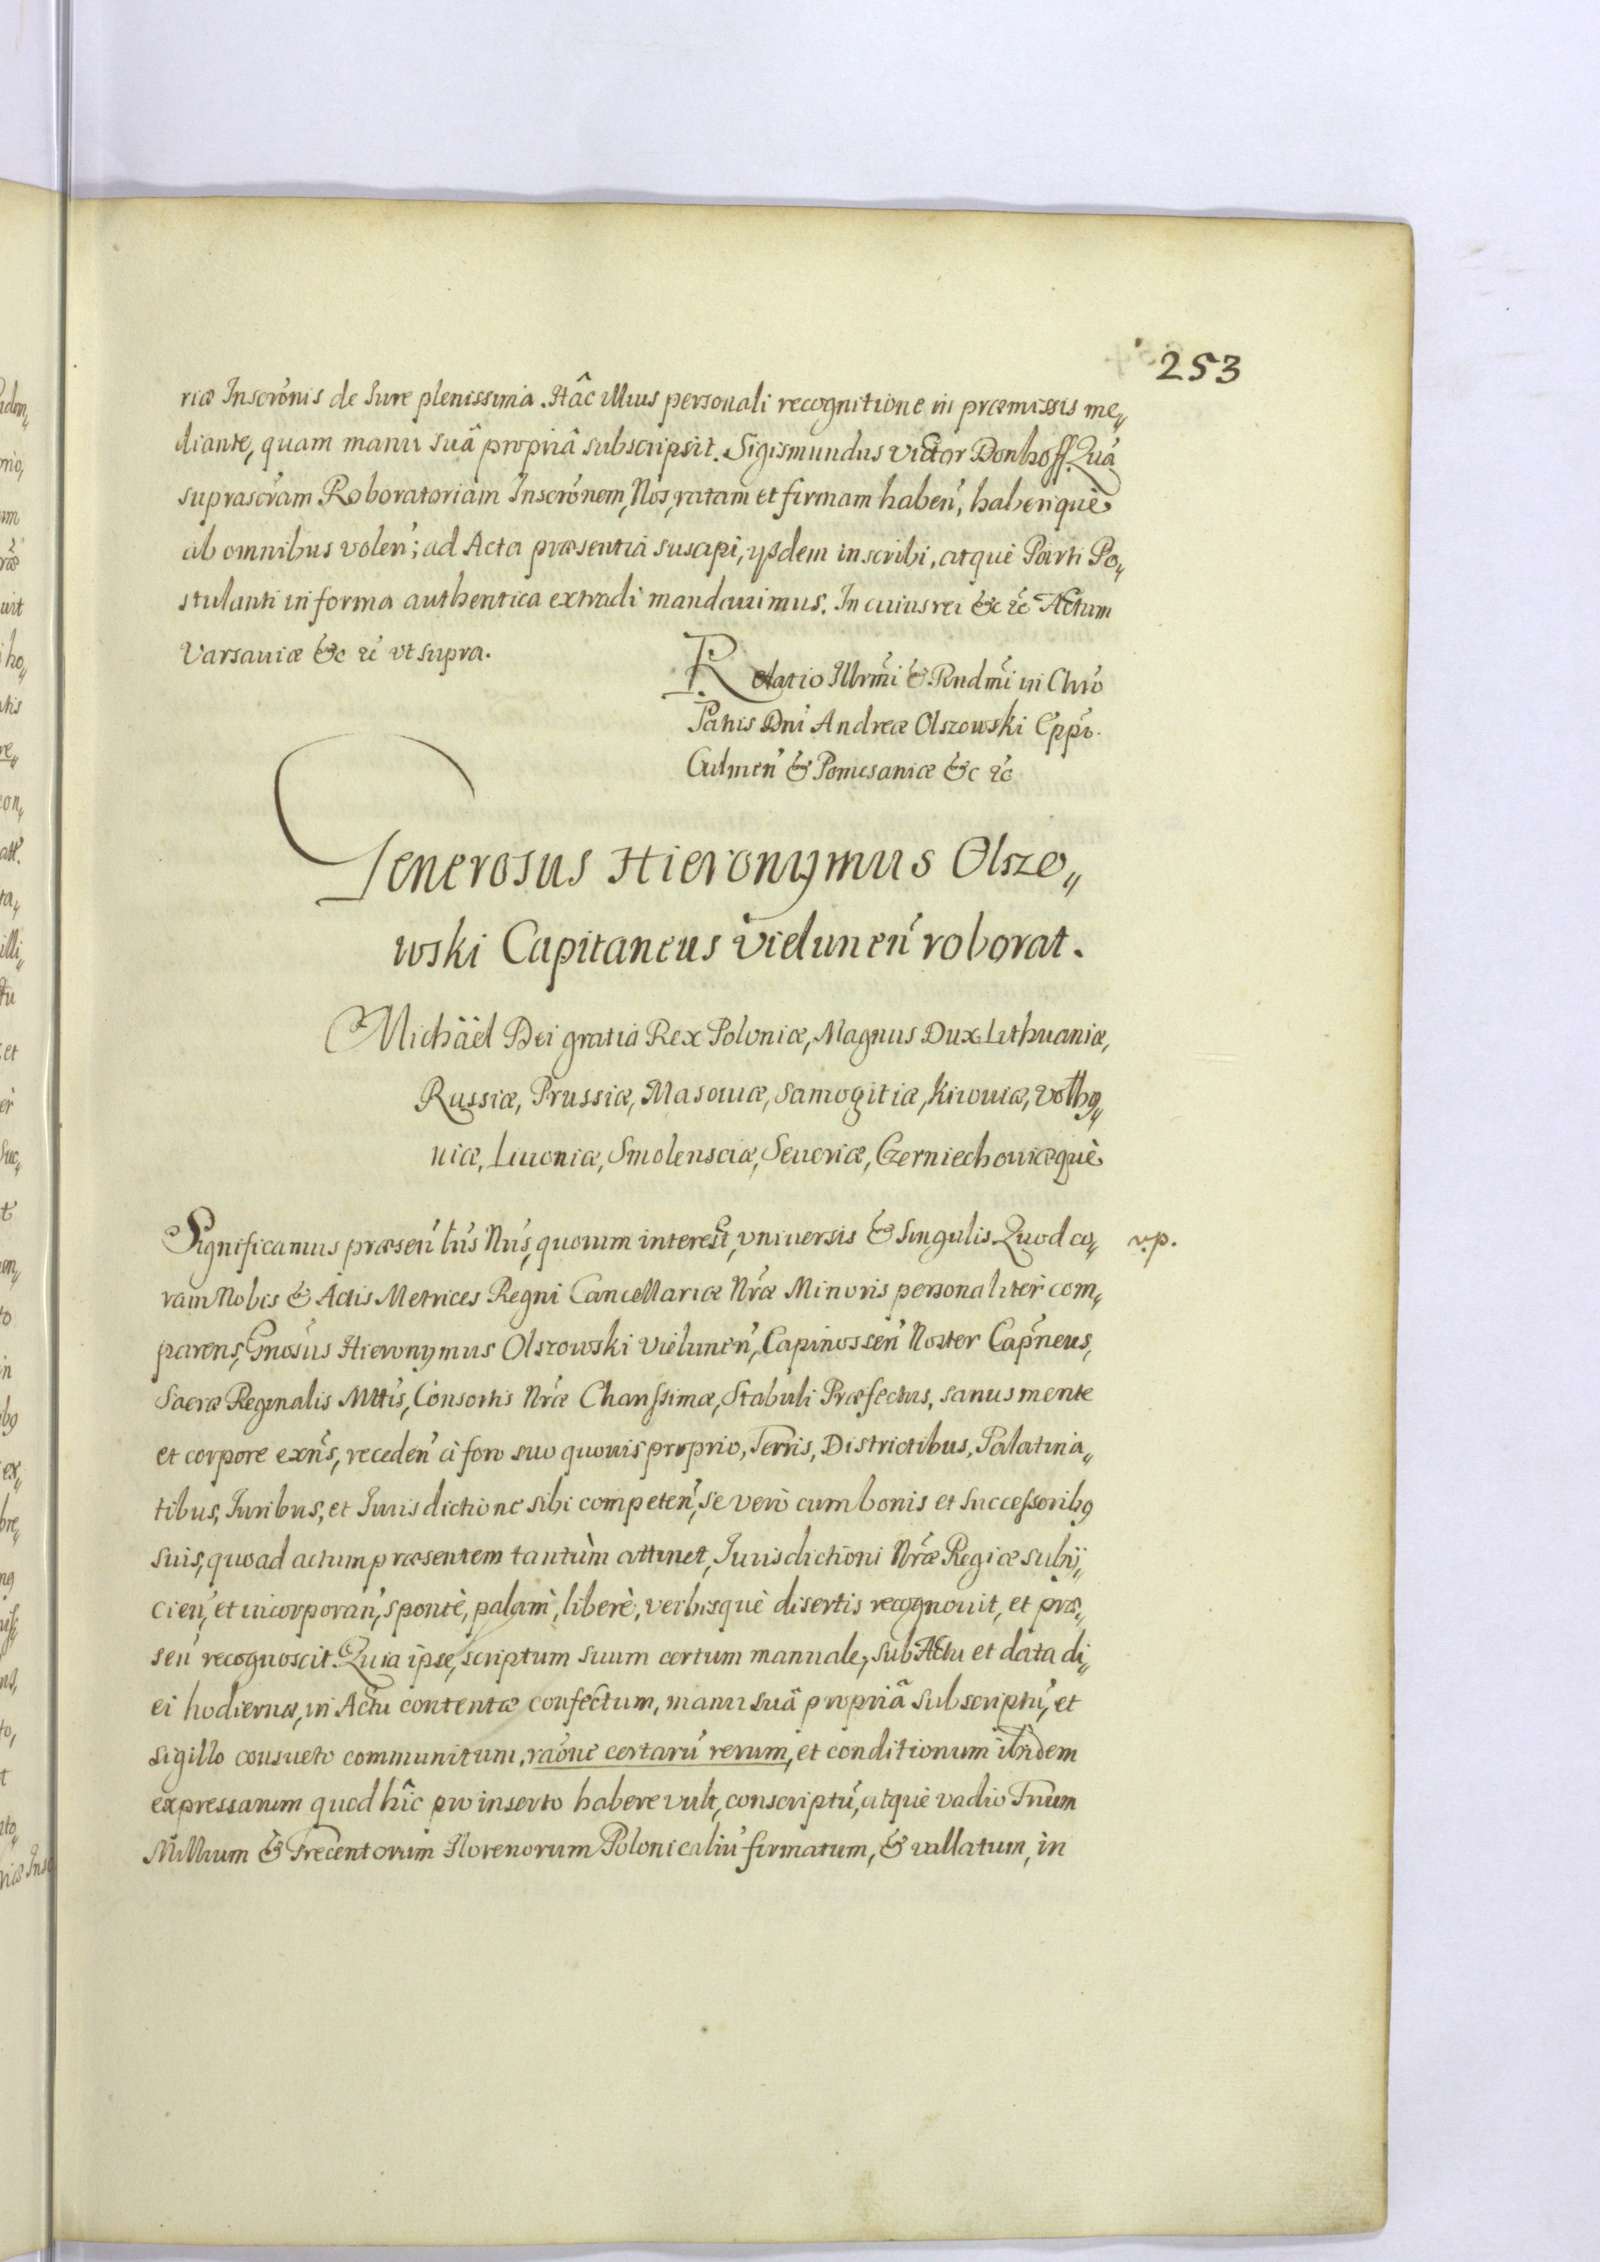 253
riæ Inscrönis de Jure plenissima. Hâc illius personali recognitione in præmissis me„
diante, quam manu suâ propriâ subscripsit. Sigismundus Victor Donhoff. Quá
suprascrám Roboratoriam Inscrönem, Nos, ratam et firmam haben', haberiquè
ab omnibus volen'; ad Acta præsentia suscipi, ijsdem inscribi, atquè Parti Po„
stulanti in forma authentica extradi mandauimus. In cuius rei &c etc Actum
Varsauiæ &c etc vt supra.
Relatio Illrmi & Rndmi in Chro
Patris Dni Andreæ Olszowski Eppi
Culmen' & Pomesaniæ &c etc
Generosus Hieronymus Olszo„
wski Capitaneus Vielunen' roborat.
Michäel Dei gratia Rex Poloniæ, Magnus Dux Lithuaniæ,
Russiæ, Prussiæ, Masouiæ, Samogitiæ, Kiiouiæ, Volhy„
niæ, Liuoniæ, Smolensciæ, Seueriæ, Czerniechouiæquè
Significamus præsen'tus Nris, quorum interest, vniuersis & singulis Quod co„
v.p.
ram Nobis & Actis Metrices Regni Cancellariæ Nræ Minoris personalitèr com„
parens, Gnosus Hieronymus Olszowski Vielunen', Capinossen' Noster Capneus,
Sacræ Reginalis Mttis, Consortis Nræ Charissimæ, Stabuli Præfectus, sanus mente
et corpore exns, receden' à foro suo quouis proprio, Terris, Districtibus, Palatina„
tibus, Juribus, et Jurisdictione sibi competen', se verò cum bonis et Successoribq
suis, quoad actum præsentem tantùm attinet, Jurisdictioni Nræ Regiæ subij„
cien', et incorporan', spontè, palàm, liberè, verbisquè disertis recognouit, et præ„
sen' recognoscit. Quia ipse, scriptum suum certum manuale, sub Actu et data di„
ei hodiernæ, in Actu contentæ confectum, manu suâ propriâ subscriptú, et
sigillo consueto communitum, raöne certarú rerum, et conditionum ibidem
expressarum quod hîc pro inserto habere vult, conscriptú, atquè vadio Trium
Millium & Trecentorum Florenorum Polonicaliú firmatum, & vallatum, in